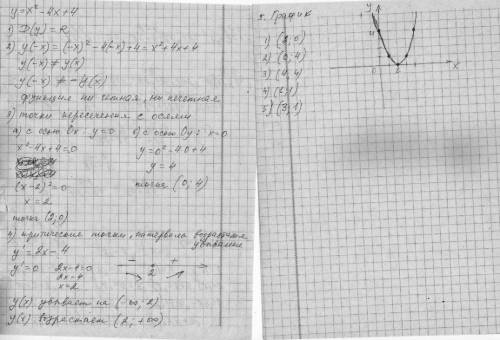 y=x²-4x+4
1) D(y)=R
2) y(-x)=(-x)²-4(-x)+4=x²+4x+4
y(-x)≠y(x)
y(-x)≠-y(x)
функция ни четная, ни нечетная
3) точки пересечения с осями
а) с осью Ox: y=0 б) с осью Oy: x=0
x²-4x+4=0 y=0²-4·0+4
y=4
(x-2)²=0 точка (0;4)
x=2
точка (2;0)
4) критические точки, интервалы возрастания,
убывания
y'=2x-4
y'=0 2x-4=0 - +
2x=4 2
x=2
y(x) убывает на (-∞;2)
y(x) возрастает (2;+∞)
5. График
1) (2;0)
2) (0;4)
3) (4;4)
4) (1;1)
5) (3;1)
y
4
0 2 x